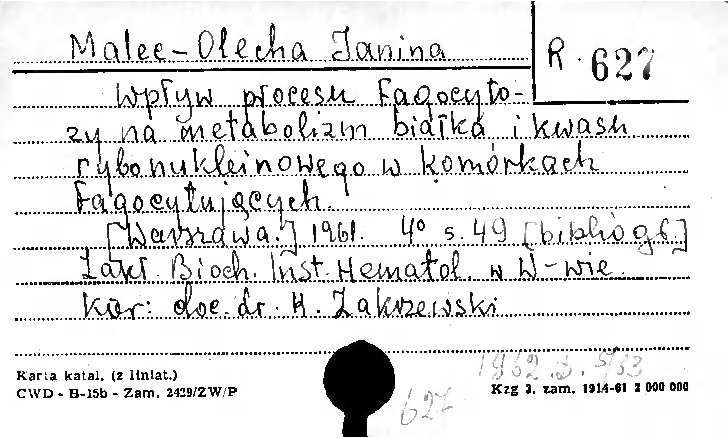 Malec-Olecha Janina
R. 627
Wpływ procesu fagocyto-
zy na metabolizm białka i kwasu
rybonukleinowego w komórkach
fagocytujących.
[Warszawa.] 1961. 4° s. 49 [bibliogr.]
Zakł. Bioch. Inst. Hematol. w W-wie.
Kier: doc. dr. H. Zakrzewski
1962.D.
Karta katal. (z liniat.)
CWD - B-15b - Zam. 2429/ZW/P
627
Kzg 3. zam. 1914-61 2 000 000